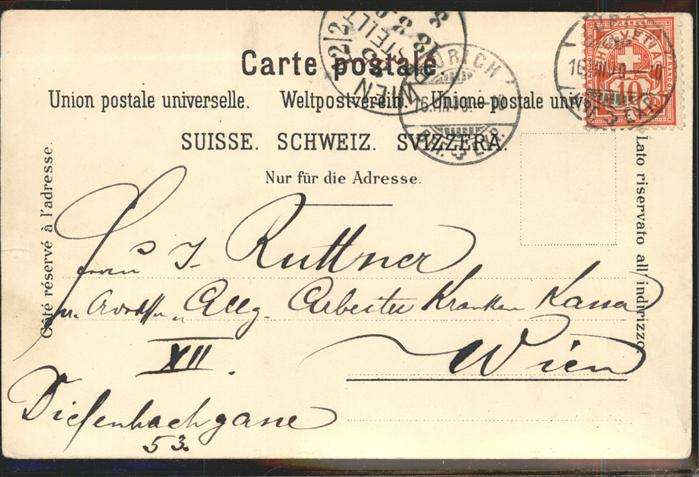 Carte postale
Union postale universelle. Weltpostverein. Unione postale univ
SUISSE. SCHWEIZ. SVIZZERA.
Nur für die Adresse.
Côté réservé à l'adresse.
Lato riservato all'indirizzo.
HELVETIA
10
ZÜRICH
WIEN
BESTELLT
J. Ruttner
Allg. Arbeiter Kranken Kassa
XII.
Wien
Diefenbachgasse
53.